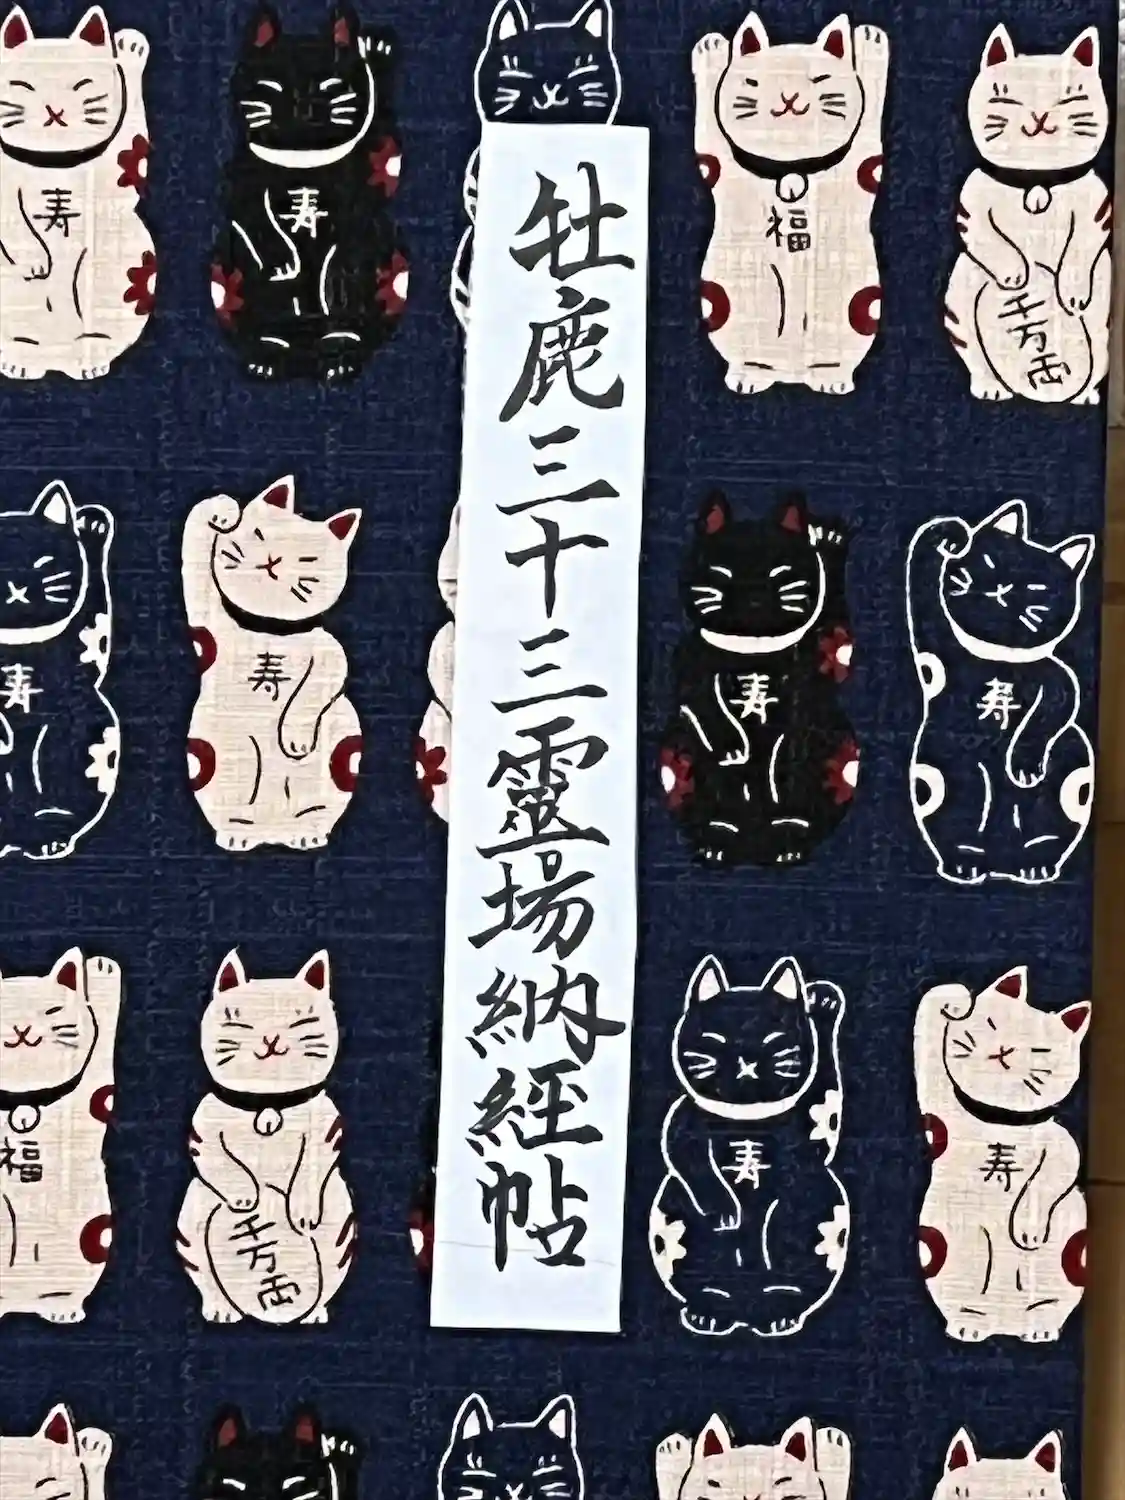 寿
寿
福
千万両
牡鹿三十三靈場納経帖
寿
寿
寿
寿
福
千万両
寿
寿